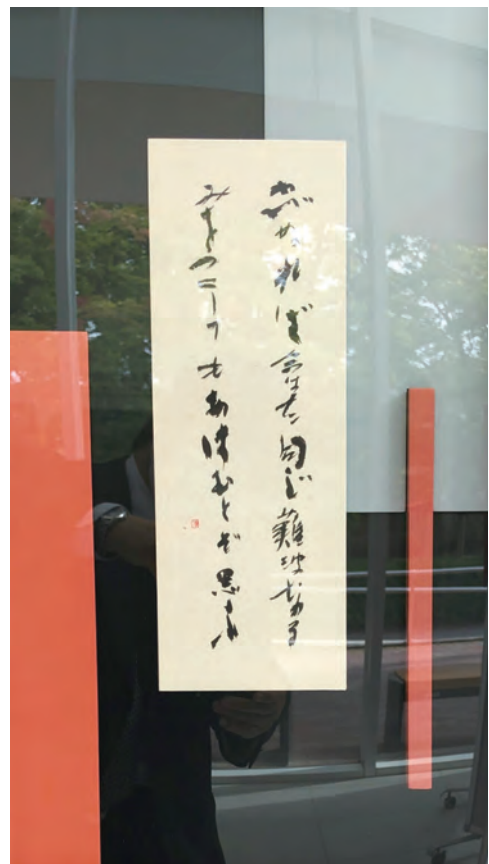 わびぬれば今はた同じ難波なる
みをつくしてもあはむとぞ思ふ